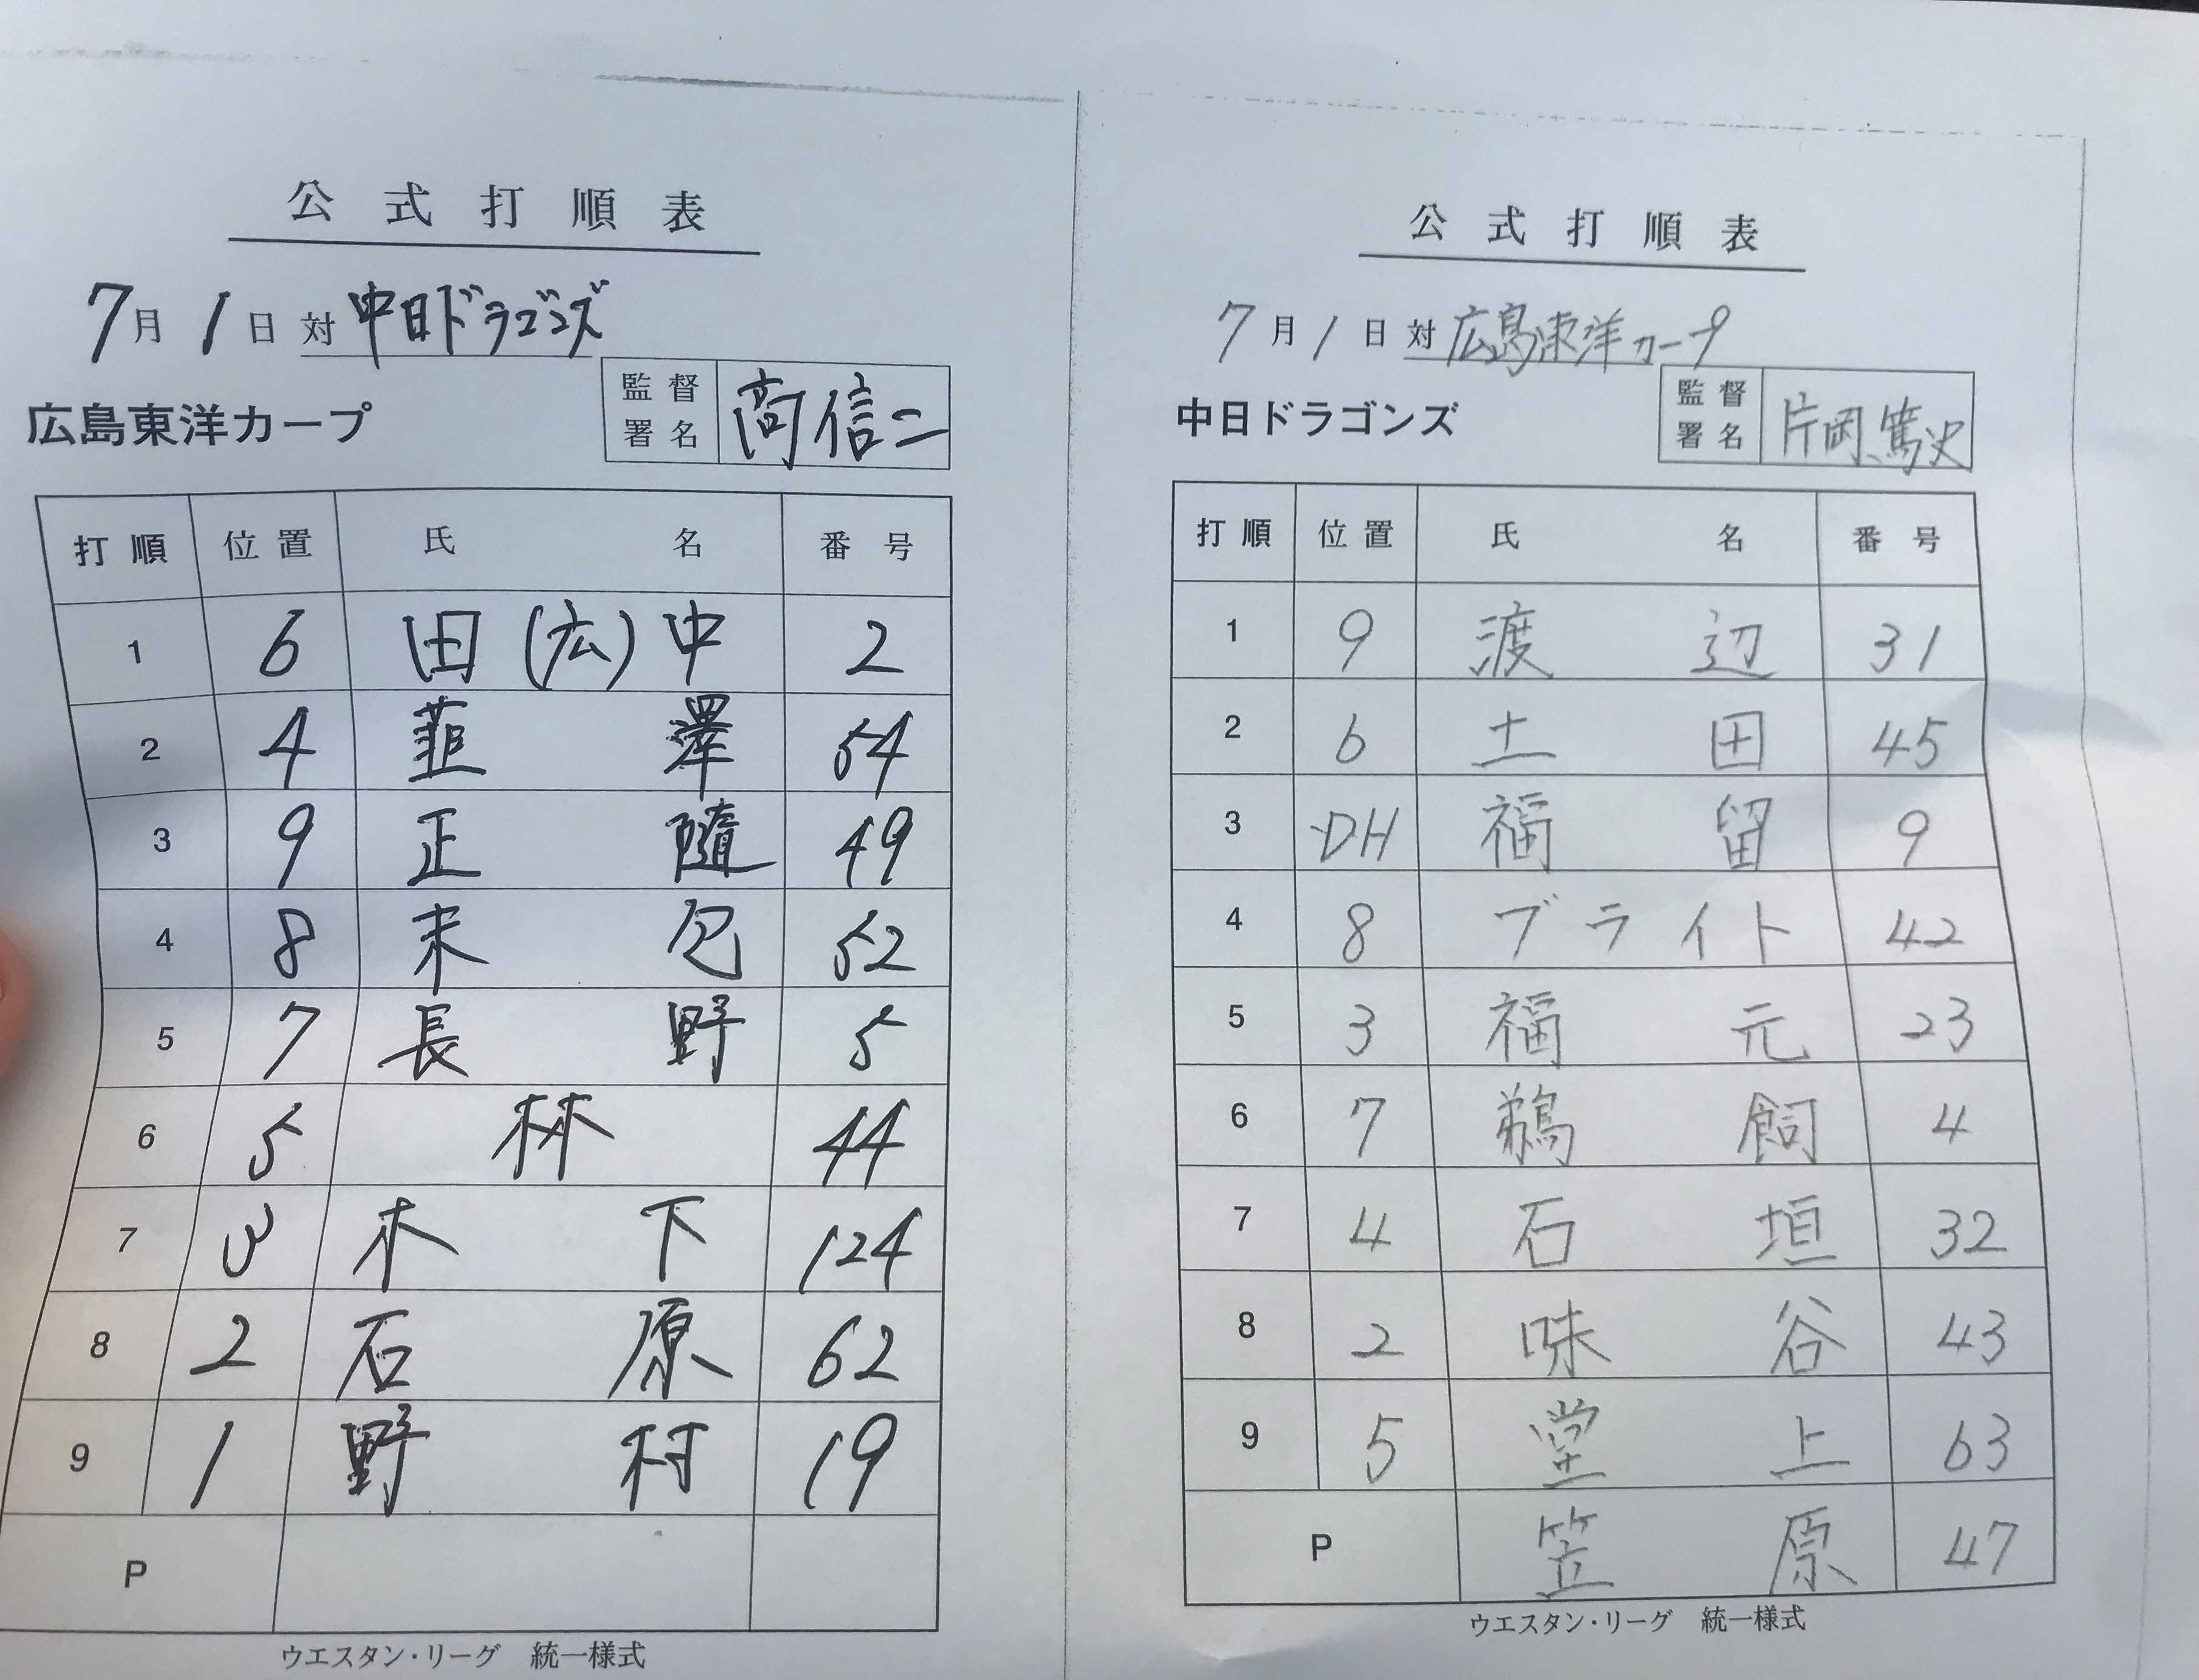 公式打順表
7月1日対中日ドラゴンズ
監督署名 高信二
広島東洋カープ
打順 位置 氏名 番号
1 6 田(広)中 2
2 4 韮澤 54
3 9 正隨 49
4 8 末包 52
5 7 長野 5
6 5 林 44
7 3 木下 124
8 2 石原 62
9 1 野村 19
P
ウエスタン・リーグ 統一様式
公式打順表
7月1日対広島東洋カープ
監督署名 片岡篤史
中日ドラゴンズ
打順 位置 氏名 番号
1 9 渡辺 31
2 6 土田 45
3 DH 福留 9
4 8 ブライト 42
5 3 福元 23
6 7 鵜飼 4
7 4 石垣 32
8 2 味谷 43
9 5 堂上 63
P 笠原 47
ウエスタン・リーグ 統一様式